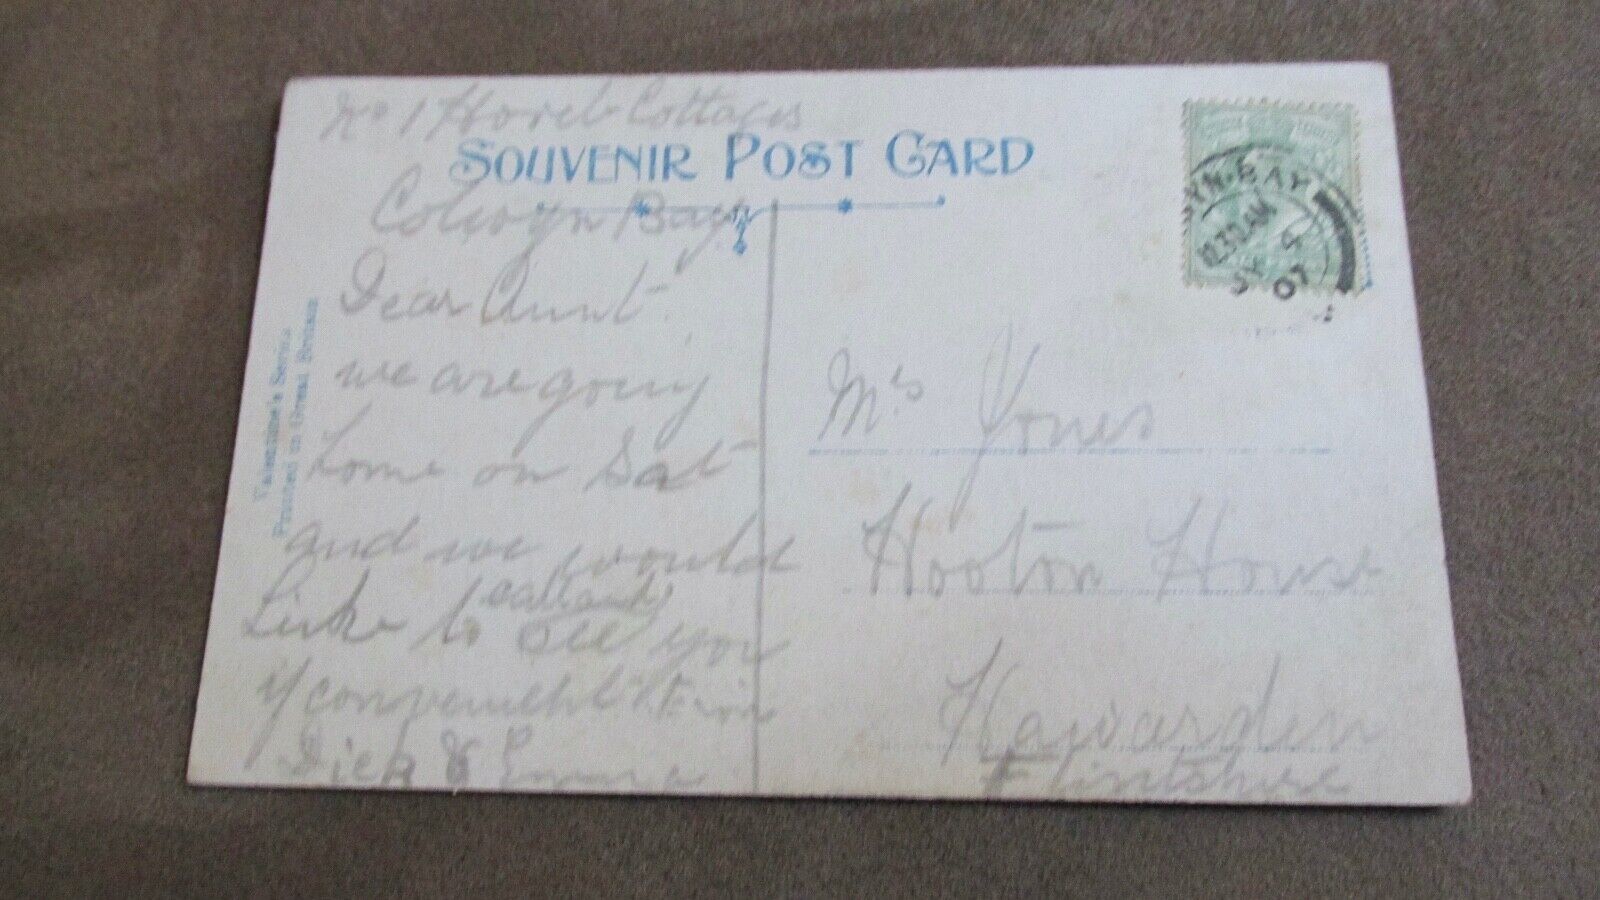 No 1 Horeb Cottages
SOUVENIR POST CARD
Colwyn Bay
Dear Aunt
we are going
home on Sat
and we would
Like to call and see you
if convenient
Dick & Emma
Valentine's Series
Printed in Great Britain
YN-BAY
10.30 AM
JY 4
07
Mrs Jones
Hooton House
Hawarden
Flintshire